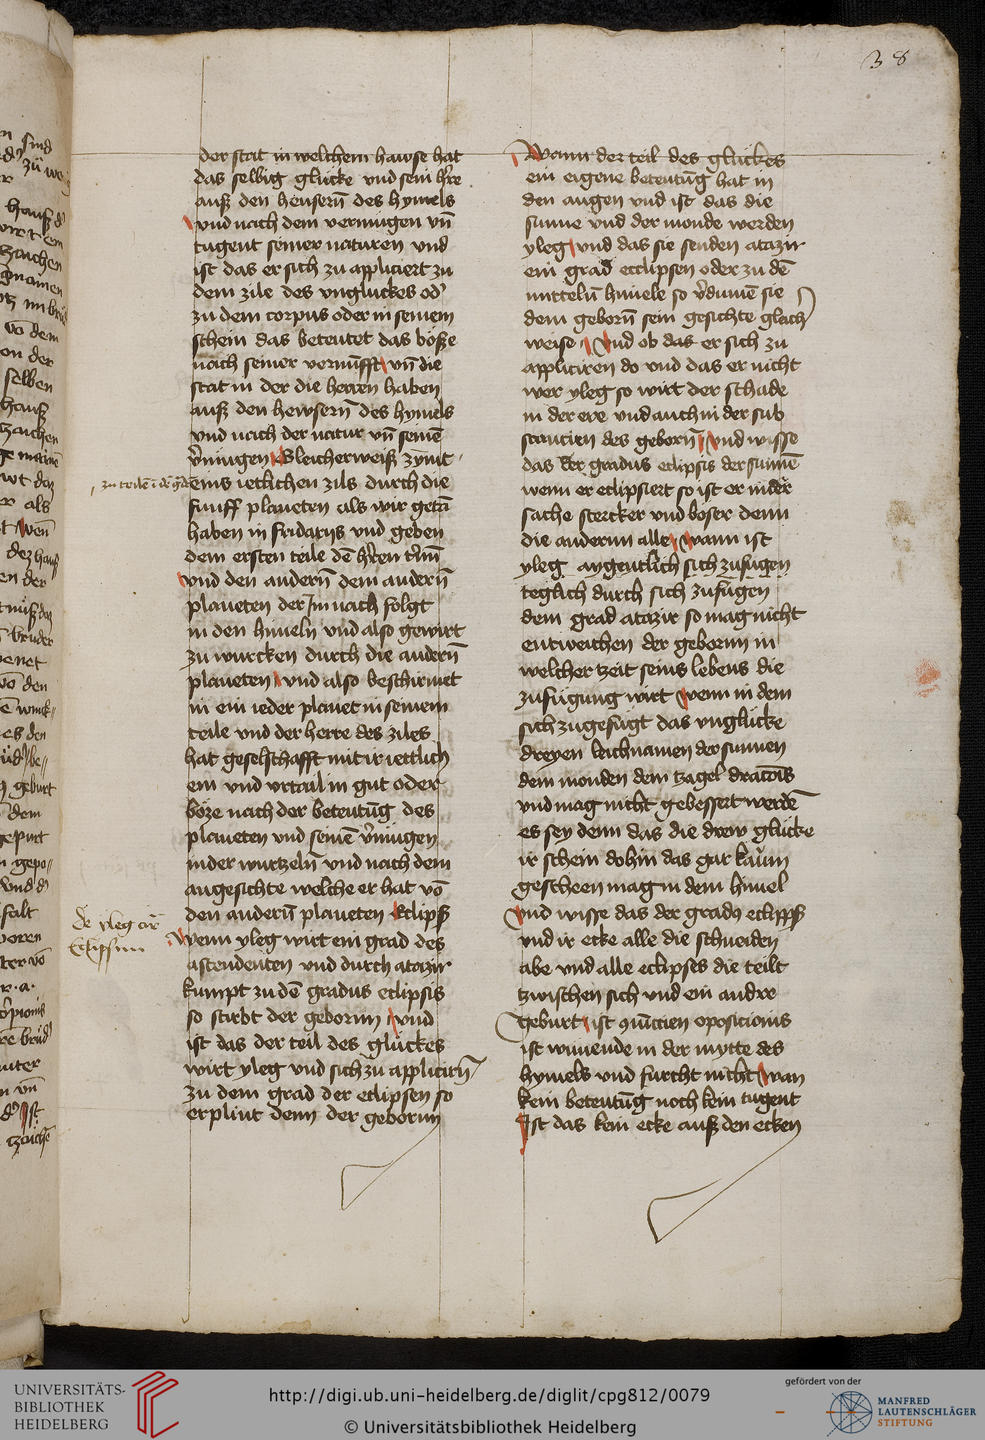 38
der stat in welchem hawse hat
das selbig glucke vnd sein h're
auß den heusern̄ des hymels
vnd nach dem vermugen vn̄
tugent seiner naturen vnd
ist das er sich zu appliciert zu
dem zile des vngluckes od'
zu dem corpus oder in seinem
schein das beteutet das boße
nach seiner vernūfft vn̄ die
stat in der die herren haben
auß den hewsern̄ des hymels
vnd nach der natur vn̄ seinē
v'mugen Gleicherweiß
eins ietlichen zils durch die
funff planeten als wir getā
haben in fridarijs vnd geben
dem ersten teile dē h'ren
vnd den andern̄ dem andern̄
planeten der Im nach folgt
in den himeln vnd also gewirt
zu wurcken durch die andern̄
planeten vnd also beschirmet
in ein ieder planet in seinem
teile vnd der herre des ziles
hat geselschafft mit ir iettlich
em vnd vrtail in gut oder
boze nach der beteutūg des
planeten vnd seinē v'mugen
in der wurtzeln̄ vnd nach dem
angesichte welche er hat vō
den andern̄ planeten Eclipß
wenn yleg wirt ein grad des
ascendenten vnd durch atazir
kumpt zu dē gradus eclipsis
so stirbt der geborun vnd
ist das der teil des gluckes
wirt yleg vnd sich zu applicirn̄
zu dem grad der eclipsen so
erplint denn der geborun
de yleg
Eclipsim
Wann der teil des gluckes
ein eigene beteutūg hat in
den augen vnd ist das die
sunne vnd der monde werden
yleg vnd das sie senden atazir
ein grad ecclipsen oder zu dē
mitteln̄ himele so v'dumē sie
dem geborn̄ sein gesichte glach
weise vnd ob das er sich zu
applitiren do vnd das er nicht
wer yleg so wirt der schade
in der ere vnd auch in der sub
stancien des geborn̄ vnd wisse
das der gradus eclipsis der sunnē
wenn er eclipsiert so ist er in der
sache stercker vnd boser denn
die anderun alle wann ist
yleg aygentlich sich zufugen
teglich durch sich zufugen
dem grad atazir so mag nicht
entweichen der geborun in
welcher tzeit seins lebens die
zufugung wirt wenn in dem
sich zugefugt das vnglucke
dreyen leichnamen der sunnen
dem monden dem tzagel draconis
vnd mag nicht gebessert werdē
es sey denn das die drew glucke
ir schein dohin das gar kaum
gescheen mag in dem himel
vnd wisse das der grad9 eclipß
vnd ir ecke alle die schneiden
abe vnd alle eclipses die teilt
tzwischen sich vnd ein andre
geburt ist 9iūctien oposicionis
ist wunende in der mytte des
hymels vnd furcht nicht wan
kein beteutūg noch kein tugent
Ist das kein ecke auß den ecken
UNIVERSITÄTS-
BIBLIOTHEK
HEIDELBERG
http://digi.ub.uni-heidelberg.de/diglit/cpg812/0079
© Universitätsbibliothek Heidelberg
gefördert von der
MANFRED
LAUTENSCHLÄGER
STIFTUNG